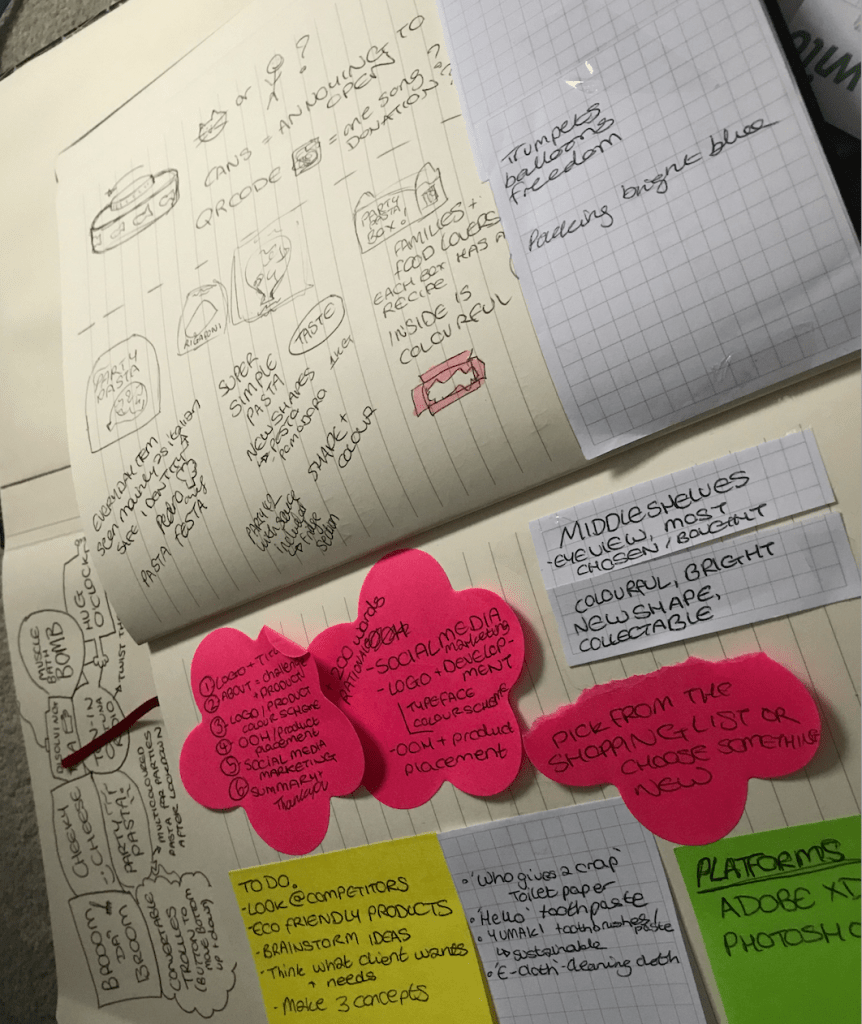 or ?
CANS = ANNOYING TO
OPEN
QRCODE = one song?
DONATION?
PARTY
PASTA
BOX!
FAMILIES +
FOOD LOVERS
EACH BOX HAS A
RECIPE
INSIDE IS
COLOURFUL
RIGATONI
TASTE
PARTY
PASTA
SUPER
SIMPLE
PASTA
NEW SHAPES
PESTO
POMODORO
SHAPE +
COLOUR
EVERYDAY ITEM
seen mainly as italian
SAFE IDENTITY
PASTA FESTA
with sauce
included
Fridge
section
Trumpets
balloons
freedom
Packing bright blue
MIDDLE SHELVES
- EYEVIEW, MOST
CHOSEN / BOUGHT
COLOURFUL, BRIGHT
NEW SHAPE,
COLLECTABLE
MUSCLE
BATH
BOMB
HUG
O'CLOCK
CHEEKY
CHEESE
PARTY
PASTA!
MULTICOLOURED
PASTA FOR PARTIES
AFTER LOCKDOWN
BADOOM
DA
BROOM
CONVERTABLE
TROLLEY TO
(BUTTON BOTTOM
MOVE
UP + DOWN)
① LOGO + TITLE
② ABOUT = challenge
+ PRODUCT
③ LOGO / PRODUCT
COLOUR SCHEME
④ OOH / product
placement
⑤ SOCIAL MEDIA
MARKETING
⑥ SUMMARY +
Thankyou
- 200 words
RATIONALE
- SOCIAL MEDIA
marketing
- LOGO + DEVELOP-
MENT
TYPEFACE
COLOUR SCHEME
- OOH + product
placement
PICK FROM THE
SHOPPING LIST OR
CHOOSE SOMETHING
NEW
TO DO.
- LOOK @ COMPETITORS
- ECO FRIENDLY PRODUCTS
- BRAINSTORM IDEAS
- Think what client wants
+ needs
- Make 3 concepts
• 'Who gives a crap'
Toilet paper
• 'Hello' toothpaste
• YUMAKI toothbrushes/paste
↳ sustainable
• E-cloth - cleaning cloth
PLATFORMS
ADOBE XD
PHOTOSHO